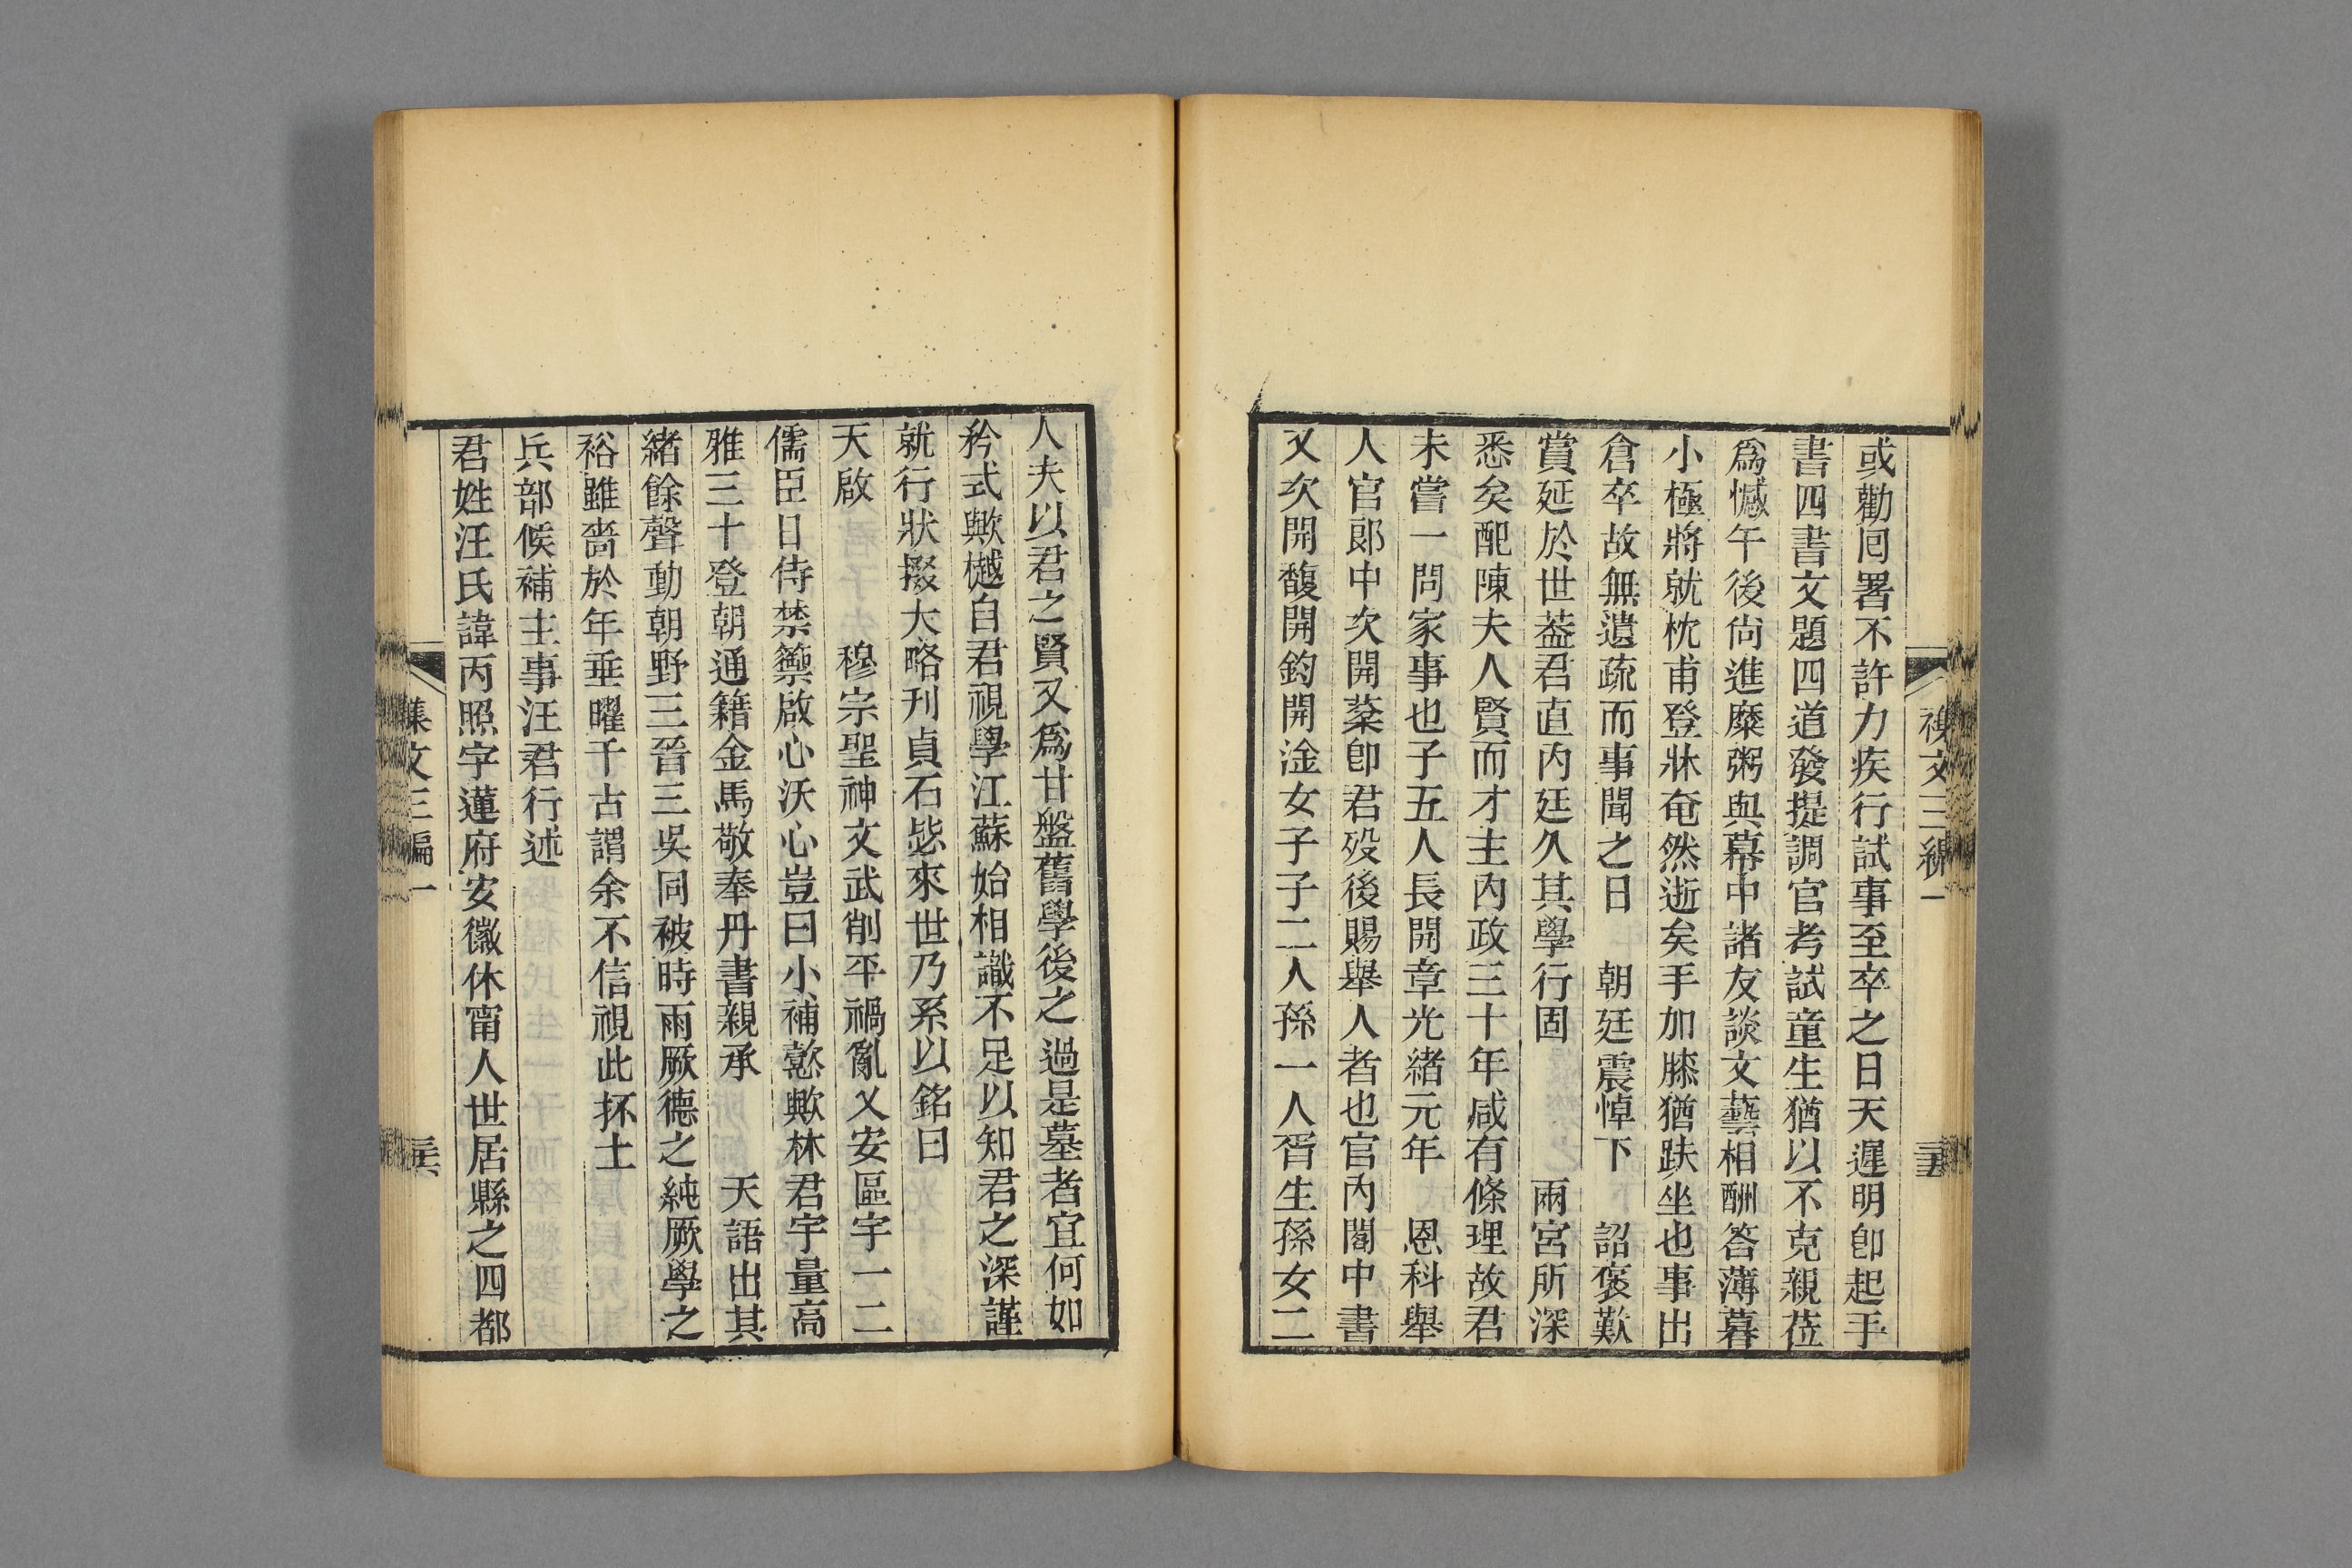 或勸囘署不許力疾行試事至卒之日天遲明卽起手
書四書文題四道發提調官考試童生猶以不克親莅
爲憾午後尙進糜粥與幕中諸友談文藝相酬答薄暮
小極將就枕甫登牀奄然逝矣手加膝猶趺坐也事出
倉卒故無遺疏而事聞之日　朝廷震悼下　詔褒歎
賞延於世葢君直内廷久其學行固　　　兩宮所深
悉矣配陳夫人賢而才主内政三十年咸有條理故君
未嘗一問家事也子五人長開章光緒元年　恩科舉
人官郞中次開棻卽君歿後賜舉人者也官内閣中書
又次開馥開鈞開淦女子子二人孫一人胥生孫女二
襍文三編一
人夫以君之賢又爲甘盤舊學後之過是墓者宜何如
矜式歟樾自君視學江蘇始相識不足以知君之深謹
就行狀掇大略刊貞石毖來世乃系以銘曰
天啟　　　穆宗聖神文武削平禍亂乂安區宇一二
儒臣日侍禁籞啟心沃心豈曰小補懿歟林君宇量高
雅三十登朝通籍金馬敬奉丹書親承　　天語出其
緒餘聲動朝野三晉三吳同被時雨厥德之純厥學之
裕雖嗇於年垂曜千古謂余不信視此抔土
兵部候補主事汪君行述
君姓汪氏諱丙照字蓮府安徽休甯人世居縣之四都
文三編一